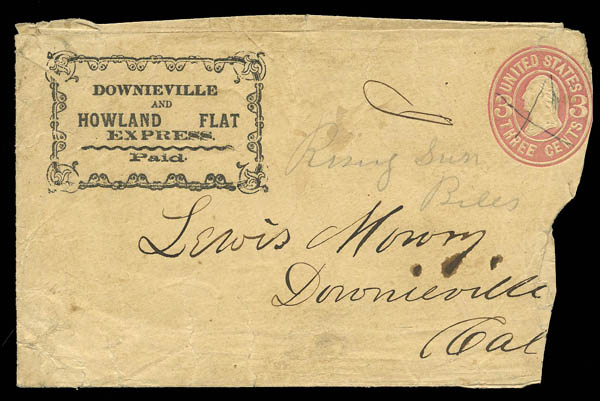 DOWNIEVILLE
AND
HOWLAND FLAT
EXPRESS.
Paid.
UNITED STATES
3 3
THREE CENTS
Rising Sun
Biles
Lewis Mowry,
Downieville
Cal